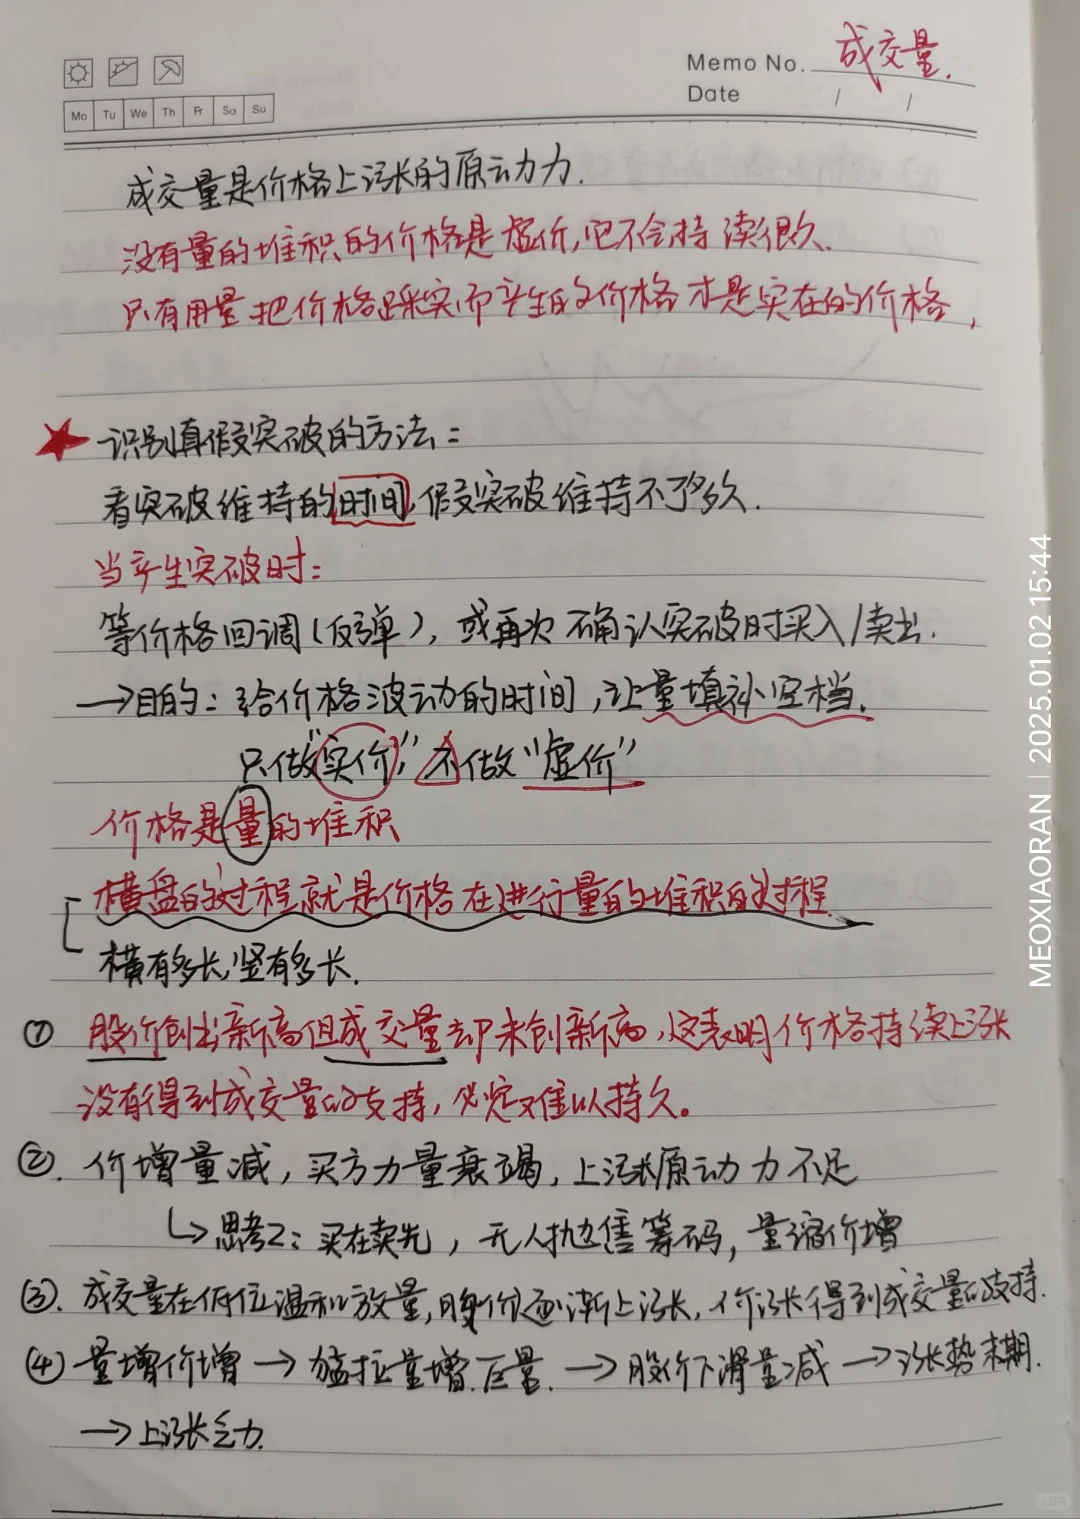 成交量.
Memo No.
Date / /
Mo Tu We Th Fr Sa Su
成交量是价格上涨的原动力.
没有量的堆积的价格是虚价,它不会持续很久.
只有用量把价格踩实而产生的价格才是实在的价格,
识别真假突破的方法:
看突破维持的时间,假突破维持不了多久.
当产生突破时:
等价格回调(反弹),或再次确认突破时买入/卖出.
→目的:给价格波动的时间,让量填补空档.
只做"实价",不做"虚价"
价格是量的堆积
横盘的过程就是价格在进行量的堆积的过程.
横有多长,竖有多长.
① 股价创出新高但成交量却未创新高,这表明价格持续上涨
没有得到成交量的支持,必定难以持久。
②. 价增量减,买方力量衰竭,上涨原动力不足
↳思考2:买在卖先,无人抛售筹码,量缩价增
③. 成交量在低位温和放量,股价逐渐上涨,价涨得到成交量的支持.
④ 量增价增→猛拉量增.巨量.→股价下滑量减→涨势末期.
→上涨乏力.
MEOXIAORAN | 2025.01.02 15:44